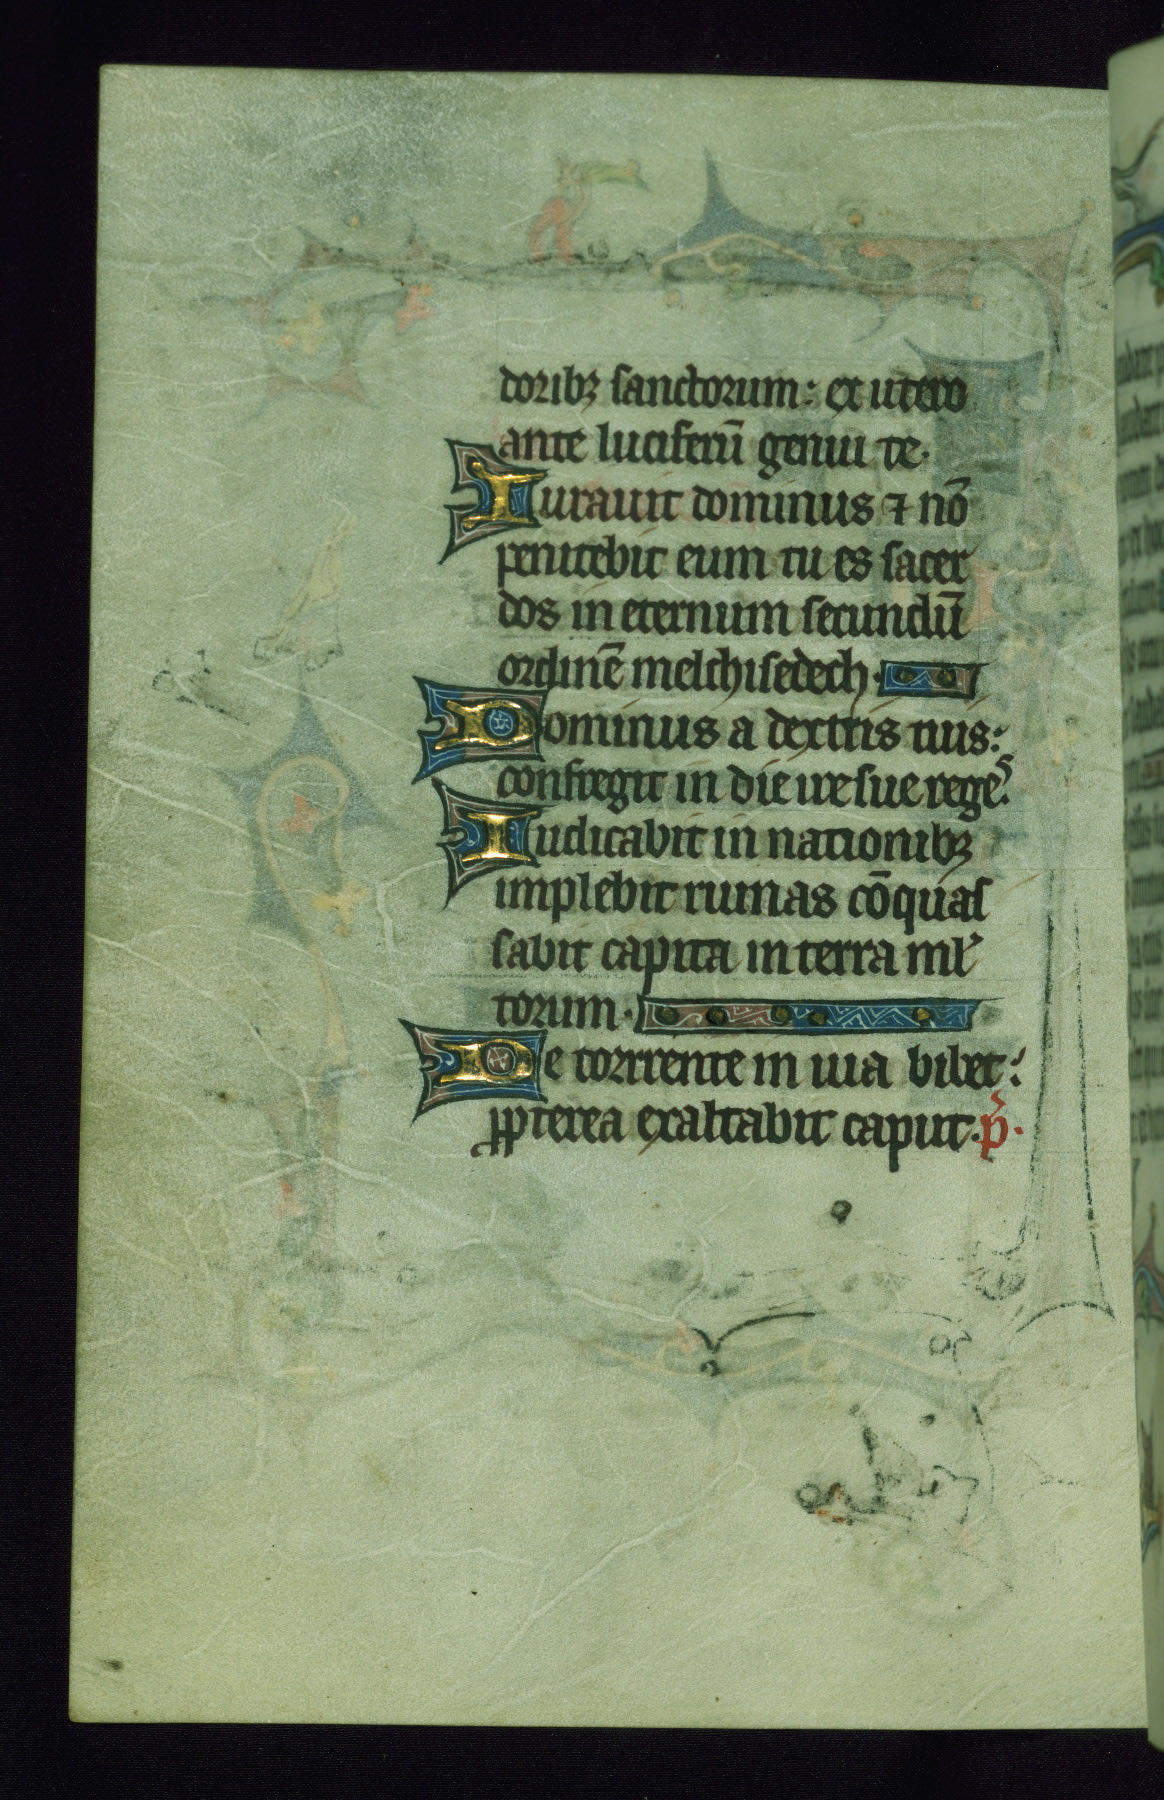 doribꝫ sanctorum: ex utero
ante luciferū genui te.
Iurauit dominus ⁊ nō
penitebit eum tu es sacer
dos in eternum secundū
ordinē melchisedech.
Dominus a dextris tuis:
confregit in die ire sue reges.
Iudicabit in nationibꝫ
implebit ruinas cōquas
sabit capita in terra ml'
torum.
De torrente in uia bibet:
ꝓpterea exaltabit caput. p̄.